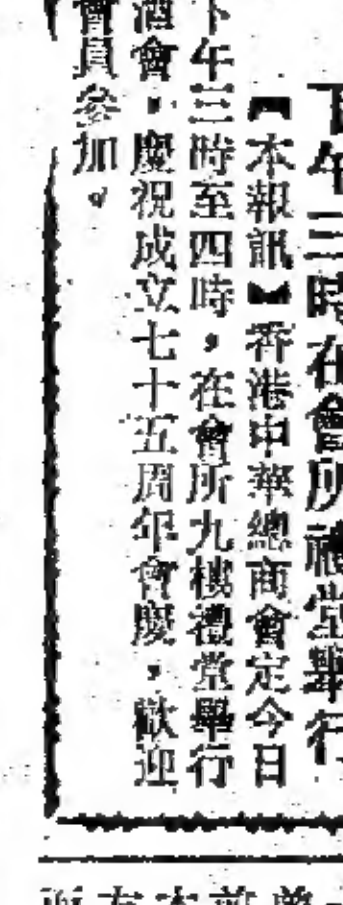 下午三時在會所禮堂舉行
【本報訊】香港中華總商會定今日
下午三時至四時，在會所九樓禮堂舉行
酒會，慶祝成立七十五周年會慶，歡迎
會員參加。